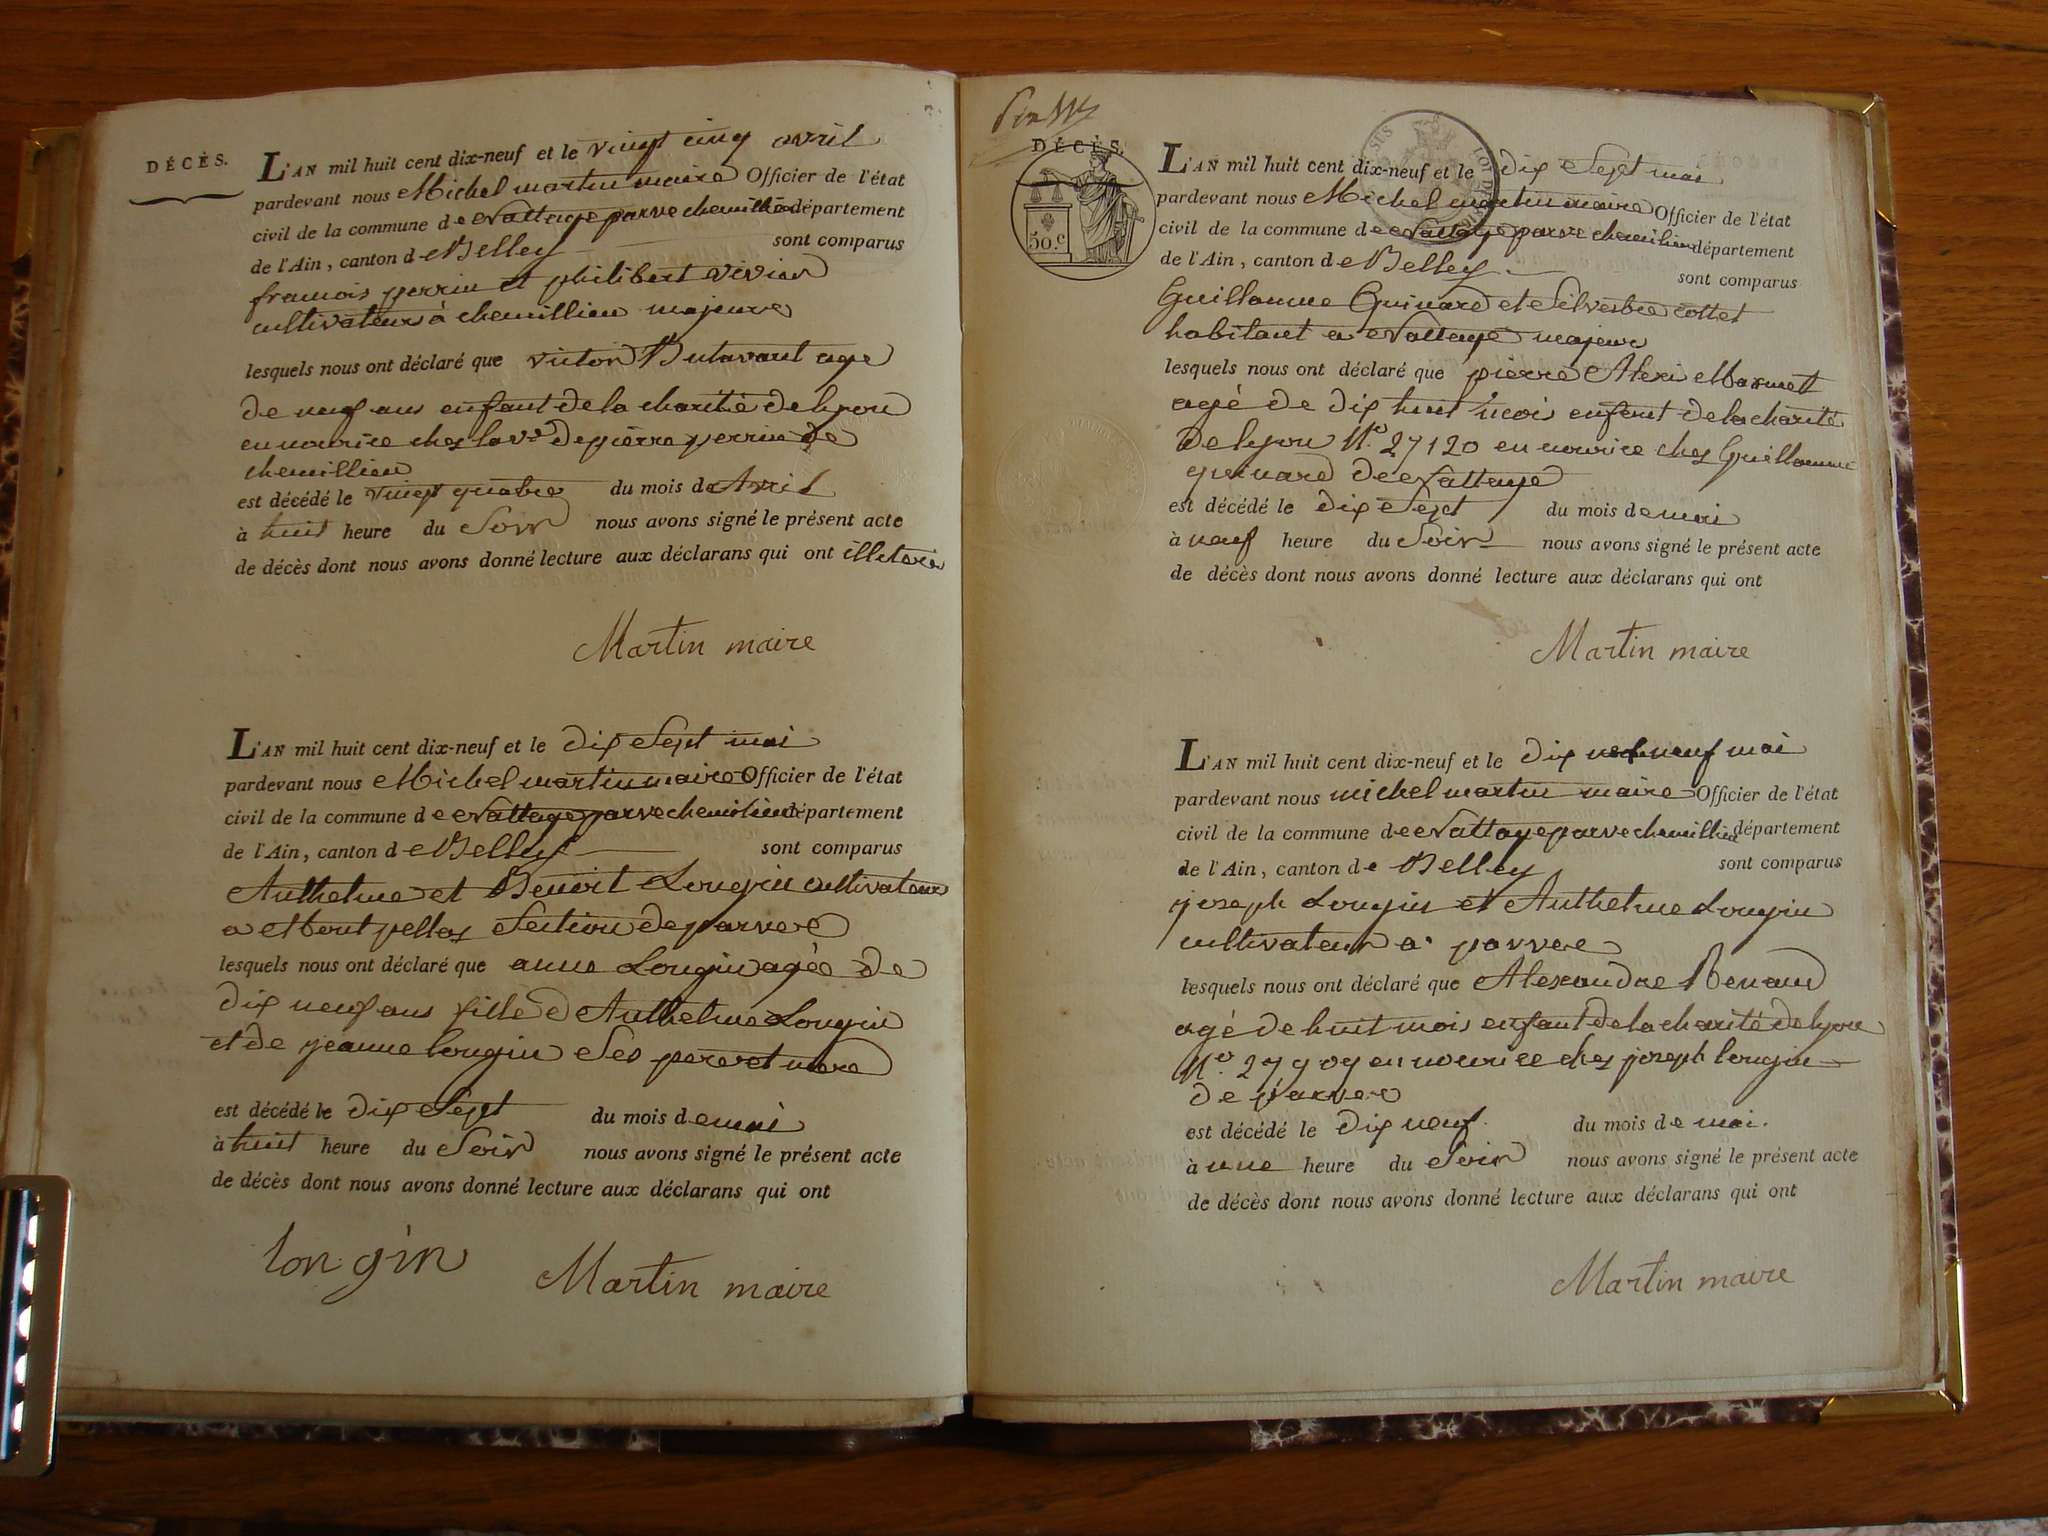 DÉCÈS.
L'AN mil huit cent dix-neuf et le vingt cinq avril
pardevant nous Michel martin maire Officier de l'état
civil de la commune de Nattage parve chemillieu département
de l'Ain, canton de Belley sont comparus
francois perrin et philibert vivian
cultivateur à chemillieu majeure
lesquels nous ont déclaré que victor Butavant age
de neuf ans enfant de la charité de lyon
en nourice ches la ve de pierre perrin de
chemillieu
est décédé le vingt quatre du mois de Avril
à huit heure du Soir nous avons signé le présent acte
de décès dont nous avons donné lecture aux déclarans qui ont illeteré
Martin maire
L'AN mil huit cent dix-neuf et le dix Sept mai
pardevant nous Michel martin maire Officier de l'état
civil de la commune de Nattage parve chemilieu département
de l'Ain, canton de Belley sont comparus
Anthelme et Benoit Longin cultivateur
a Mont pellas Section de parve
lesquels nous ont déclaré que anne Longin agée de
dix neuf ans fille d Anthelme Longin
et de jeanne longin Ses pere et mere
est décédé le dix Sept du mois de mai
à huit heure du Soir nous avons signé le présent acte
de décès dont nous avons donné lecture aux déclarans qui ont
longin Martin maire
DÉCÈS.
50.c
L'AN mil huit cent dix-neuf et le dix Sept mai
pardevant nous Michel martin maire Officier de l'état
civil de la commune de Nattage parve chemilieu département
de l'Ain, canton de Belley sont comparus
Guillaume Guinard et Silvestre cottet
habitant a Nattage majeur
lesquels nous ont déclaré que pierre Alexi Marmet
agé de dix huit mois enfant de la charité
de lyon No 27120 en nourice ches Guillaume
guinard de Nattage
est décédé le dix Sept du mois de mai
à neuf heure du Soir nous avons signé le présent acte
de décès dont nous avons donné lecture aux déclarans qui ont
Martin maire
L'AN mil huit cent dix-neuf et le dix neuf mai
pardevant nous michel martin maire Officier de l'état
civil de la commune de Nattage parve chemillieu département
de l'Ain, canton de Belley sont comparus
joseph Longin et Anthelme Longin
cultivateur a parve
lesquels nous ont déclaré que Alexandre Renaud
agé de huit mois enfant de la charité de lyon
No en nourice ches joseph longin
de parve
est décédé le dix neuf du mois de mai.
à une heure du Soir nous avons signé le présent acte
de décès dont nous avons donné lecture aux déclarans qui ont
Martin maire